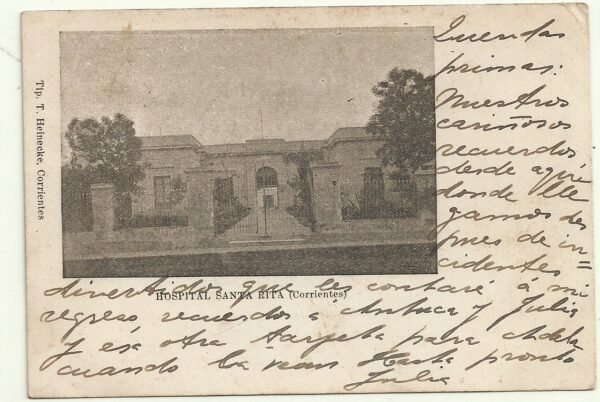 Tip. T. Heinecke, Corrientes
HOSPITAL SANTA RITA (Corrientes)
Queridas
primas:
Nuestros
cariñosos
recuerdos
desde aquí
donde lle
gamos des
pues de in=
cidentes
divertidos que les contaré á mi
regreso recuerdos á Antuca y Julia
y ésa otra tarjeta para
cuando la vean Hasta pronto
Julia